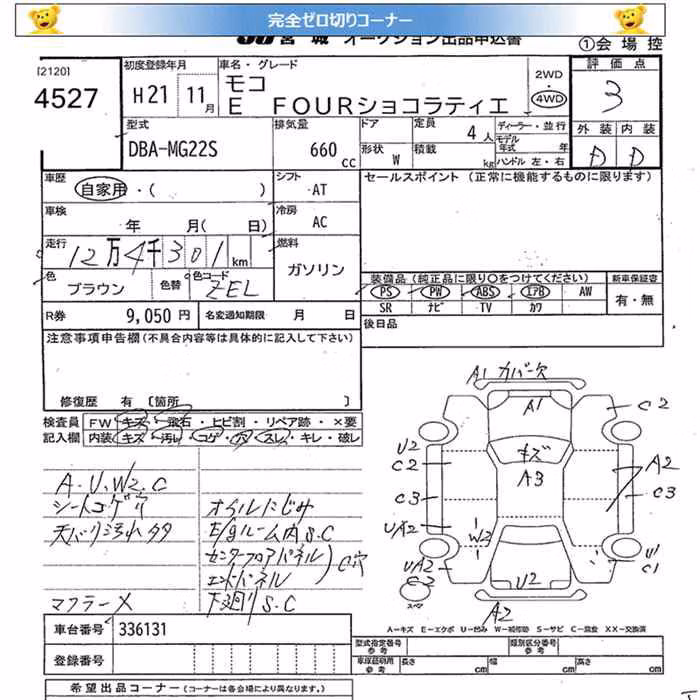 完全ゼロ切りコーナー
JU宮城 オークション出品申込書
①会場控
[2120]
4527
初度登録年月
H21 11月
車名・グレード
モコ
E FOURショコラティエ
2WD
・
4WD
評価点
3
外装 内装
D D
型式
DBA-MG22S
排気量
660 cc
ドア
形状
W
定員
4人
積載
kg
ディーラー・並行
モデル年式 年
ハンドル 左・右
車歴
自家用・( )
シフト
AT
車検
年 月( 日)
冷房
AC
走行
12万4千301km
燃料
ガソリン
色
ブラウン
色替
色コード
ZEL
R券
9,050円
名変通知期限 月 日
セールスポイント (正常に機能するものに限ります)
装備品 (純正品に限り○をつけてください)
PS PW ABS エアB AW
SR ナビ TV カワ
新車保証書
有・無
後日品
注意事項申告欄 (不具合内容等は具体的に記入して下さい)
修復歴 有 [箇所 ]
検査員記入欄
FW キズ・飛石・ヒビ割・リペア跡・×要
内装 キズ・汚レ・コゲ・穴・スレ・キレ・破レ
A.U.W2.C
シートコゲ穴
天バリ汚れ
マフラーX
オイルにじみ
E/gルーム内S.C
センターフロアパネル
エンドパネル
C穴
下廻りS.C
A1 カバー穴
A1
C2
U2
C2
キズ
A3
A2
C3
C3
UA2
W2
UA2
C2
U1
C1
U2
スペア
A2
A－キズ E－エクボ U－凹み W－補修跡 S－サビ C－腐食 XX－交換済
車台番号
336131
登録番号
型式指定番号
参考
類別区分番号
参考
車庫証明用
参考
長さ cm
幅 cm
高さ cm
希望出品コーナー (コーナーは各会場により異なります。)